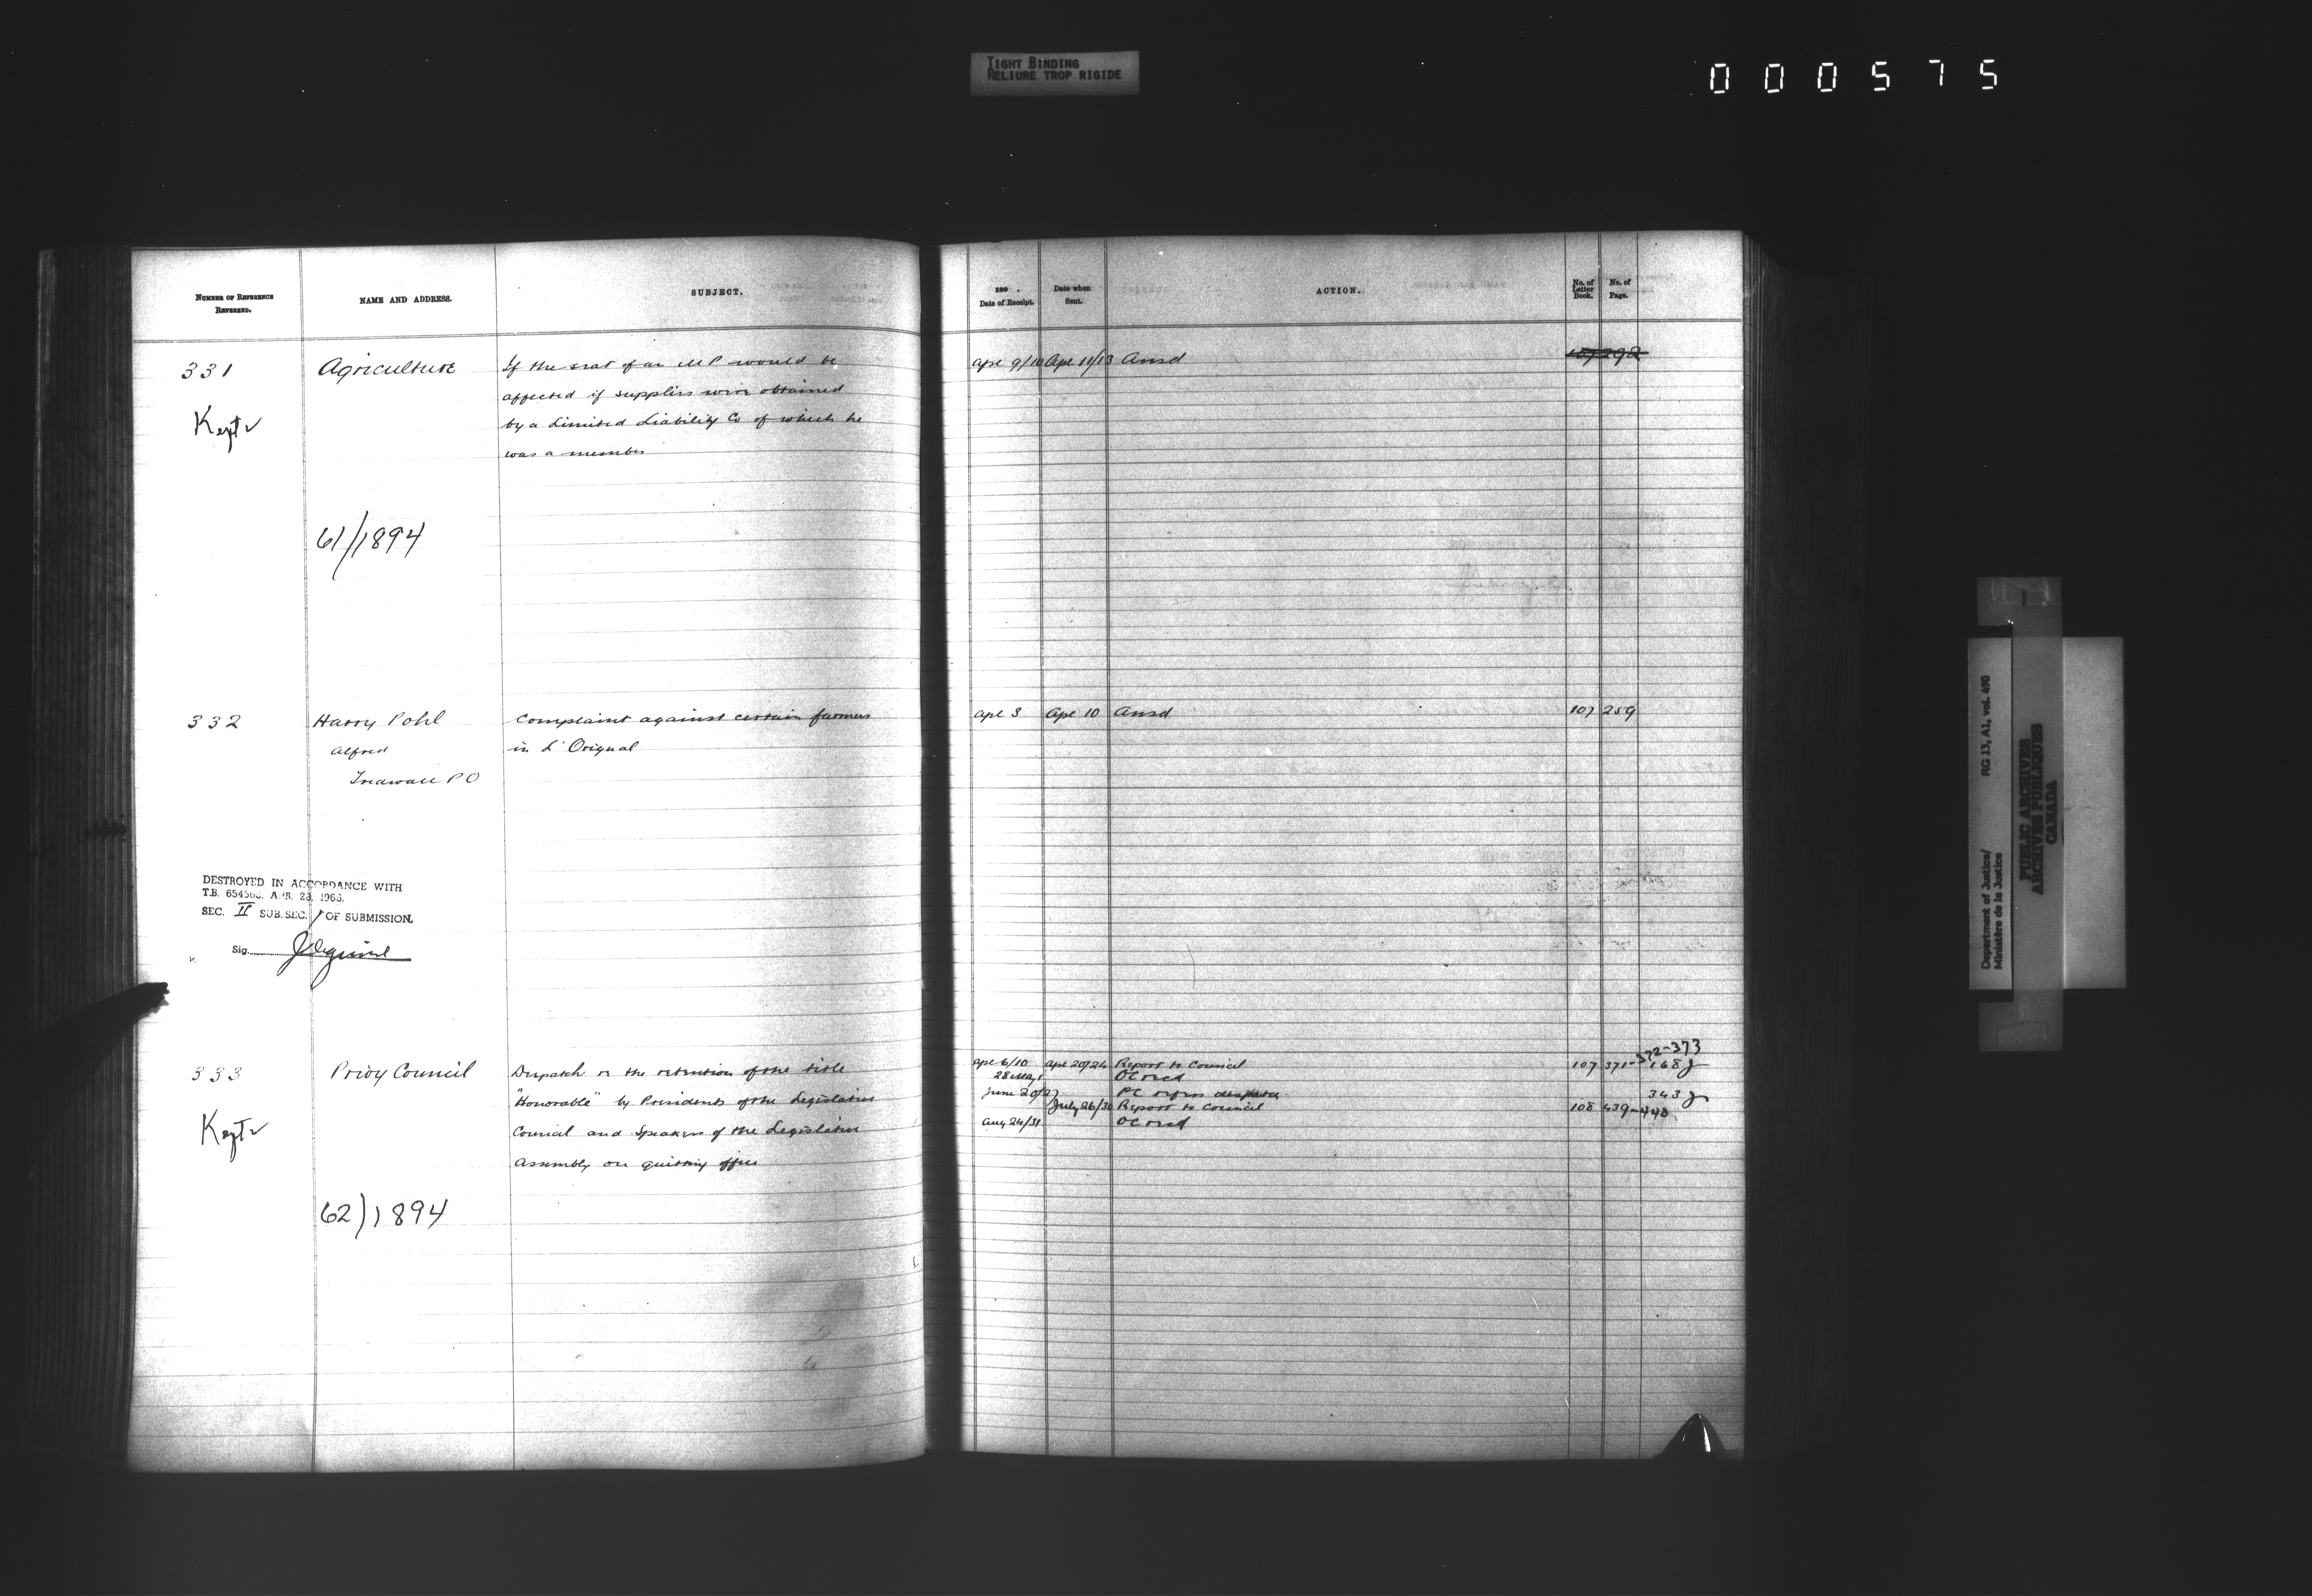 TIGHT BINDING
RELIURE TROP RIGIDE
000575
NUMBER OF REFERENCE
REFERRED.
NAME AND ADDRESS.
SUBJECT.
189 .
Date of Receipt.
Date when
Sent.
ACTION.
No. of
Letter
Book.
No. of
Page.
331
Agriculture
If the seat of an M P would be
affected if supplies were obtained
by a Limited Liability Co of which he
was a member
Kept
61/1894
Apl 9/10 Apl 11/13 Ansd 107 292
332
Harry Pohl
Alfred
P O
Complaint against certain farmers
in L'Orignal
Apl 3 Apl 10 Ansd 107 259
DESTROYED IN ACCORDANCE WITH
T.B. APR. 28, 1966.
SEC. II SUB. SEC. 1 OF SUBMISSION.
Sig.
333
Privy Council
Despatch re the retention of the title
"Honorable" by Presidents of the Legislative
Council and Speakers of the Legislative
Assembly on quitting office
Kept
62/1894
Apl 6/10 Apl 20/24 Report to Council 107 371-372-373
28 May OC recd 168 J
June 20/27 PC refers despatch 343 J
July 26/30 Report to Council 108 439-440
Aug 24/31 OC recd
Department of Justice/ RG 13, A1, vol. 490
Ministère de la Justice
PUBLIC ARCHIVES
ARCHIVES PUBLIQUES
CANADA